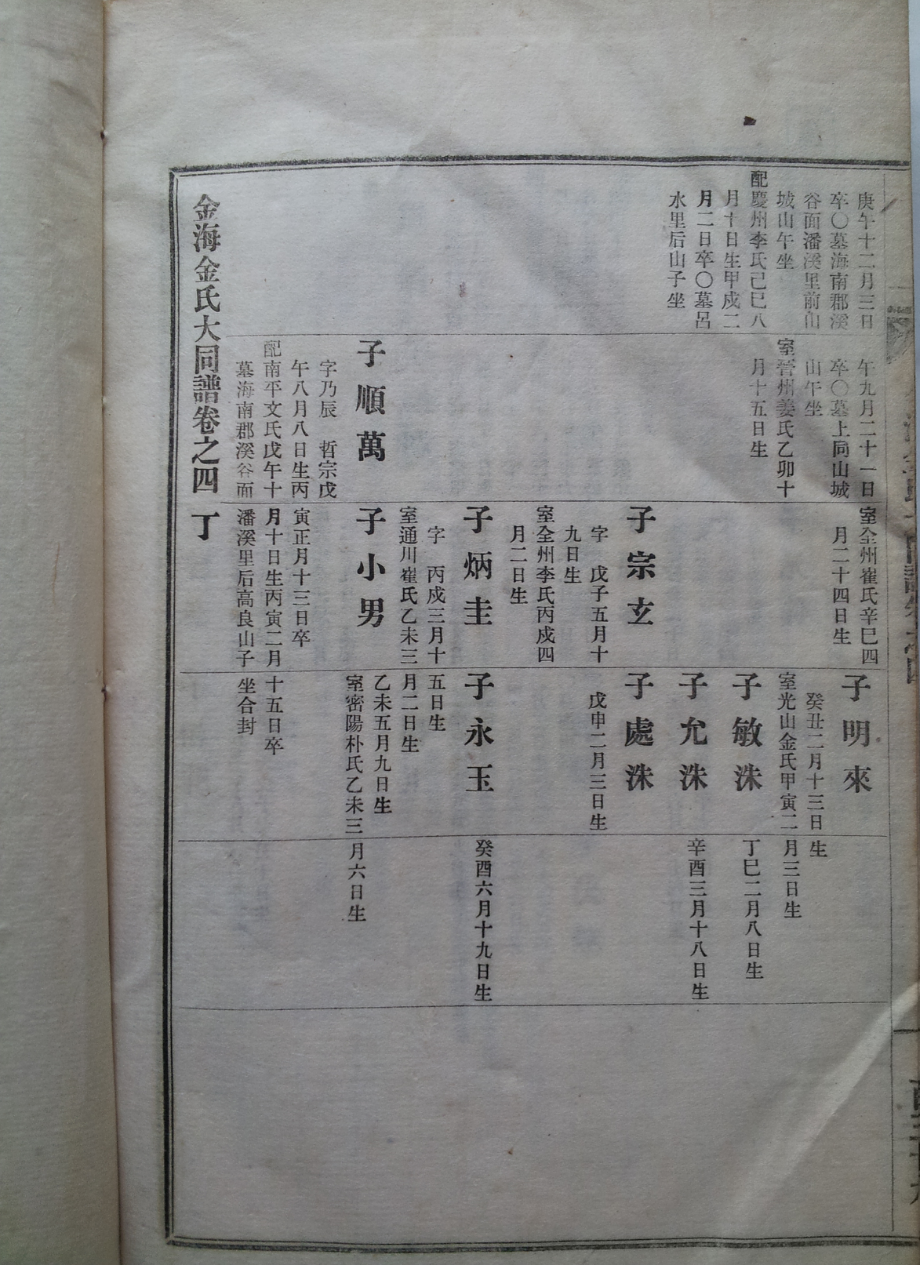 庚午十二月三日
卒〇墓海南郡溪
谷面潘溪里前山
城山午坐
配慶州李氏己巳八
月十日生甲戍二
月二日卒〇墓呂
水里后山子坐
午九月二十一日
卒〇墓上同山城
山午坐
室晉州姜氏乙卯十
月十五日生
子順萬
字乃辰 哲宗戊
午八月八日生丙
配南平文氏戊午十
墓海南郡溪谷面
室全州崔氏辛巳四
月二十四日生
子宗玄
字 戊子五月十
九日生
室全州李氏丙戍四
月二日生
子炳圭
字 丙戍三月十
室通川崔氏乙未三
子小男
寅正月十三日卒
月十日生丙寅二月
潘溪里后高良山子
子明來
癸丑二月十三日
室光山金氏甲寅二
子敏洙
子允洙
子處洙
戊申二月三日生
子永玉
五日生
月二日生
乙未五月九日生
室密陽朴氏乙未三
十五日卒
坐合封
生
月三日生
丁巳二月八日生
辛酉三月十八日生
癸酉六月十九日生
月六日生
金海金氏大同譜卷之四 丁